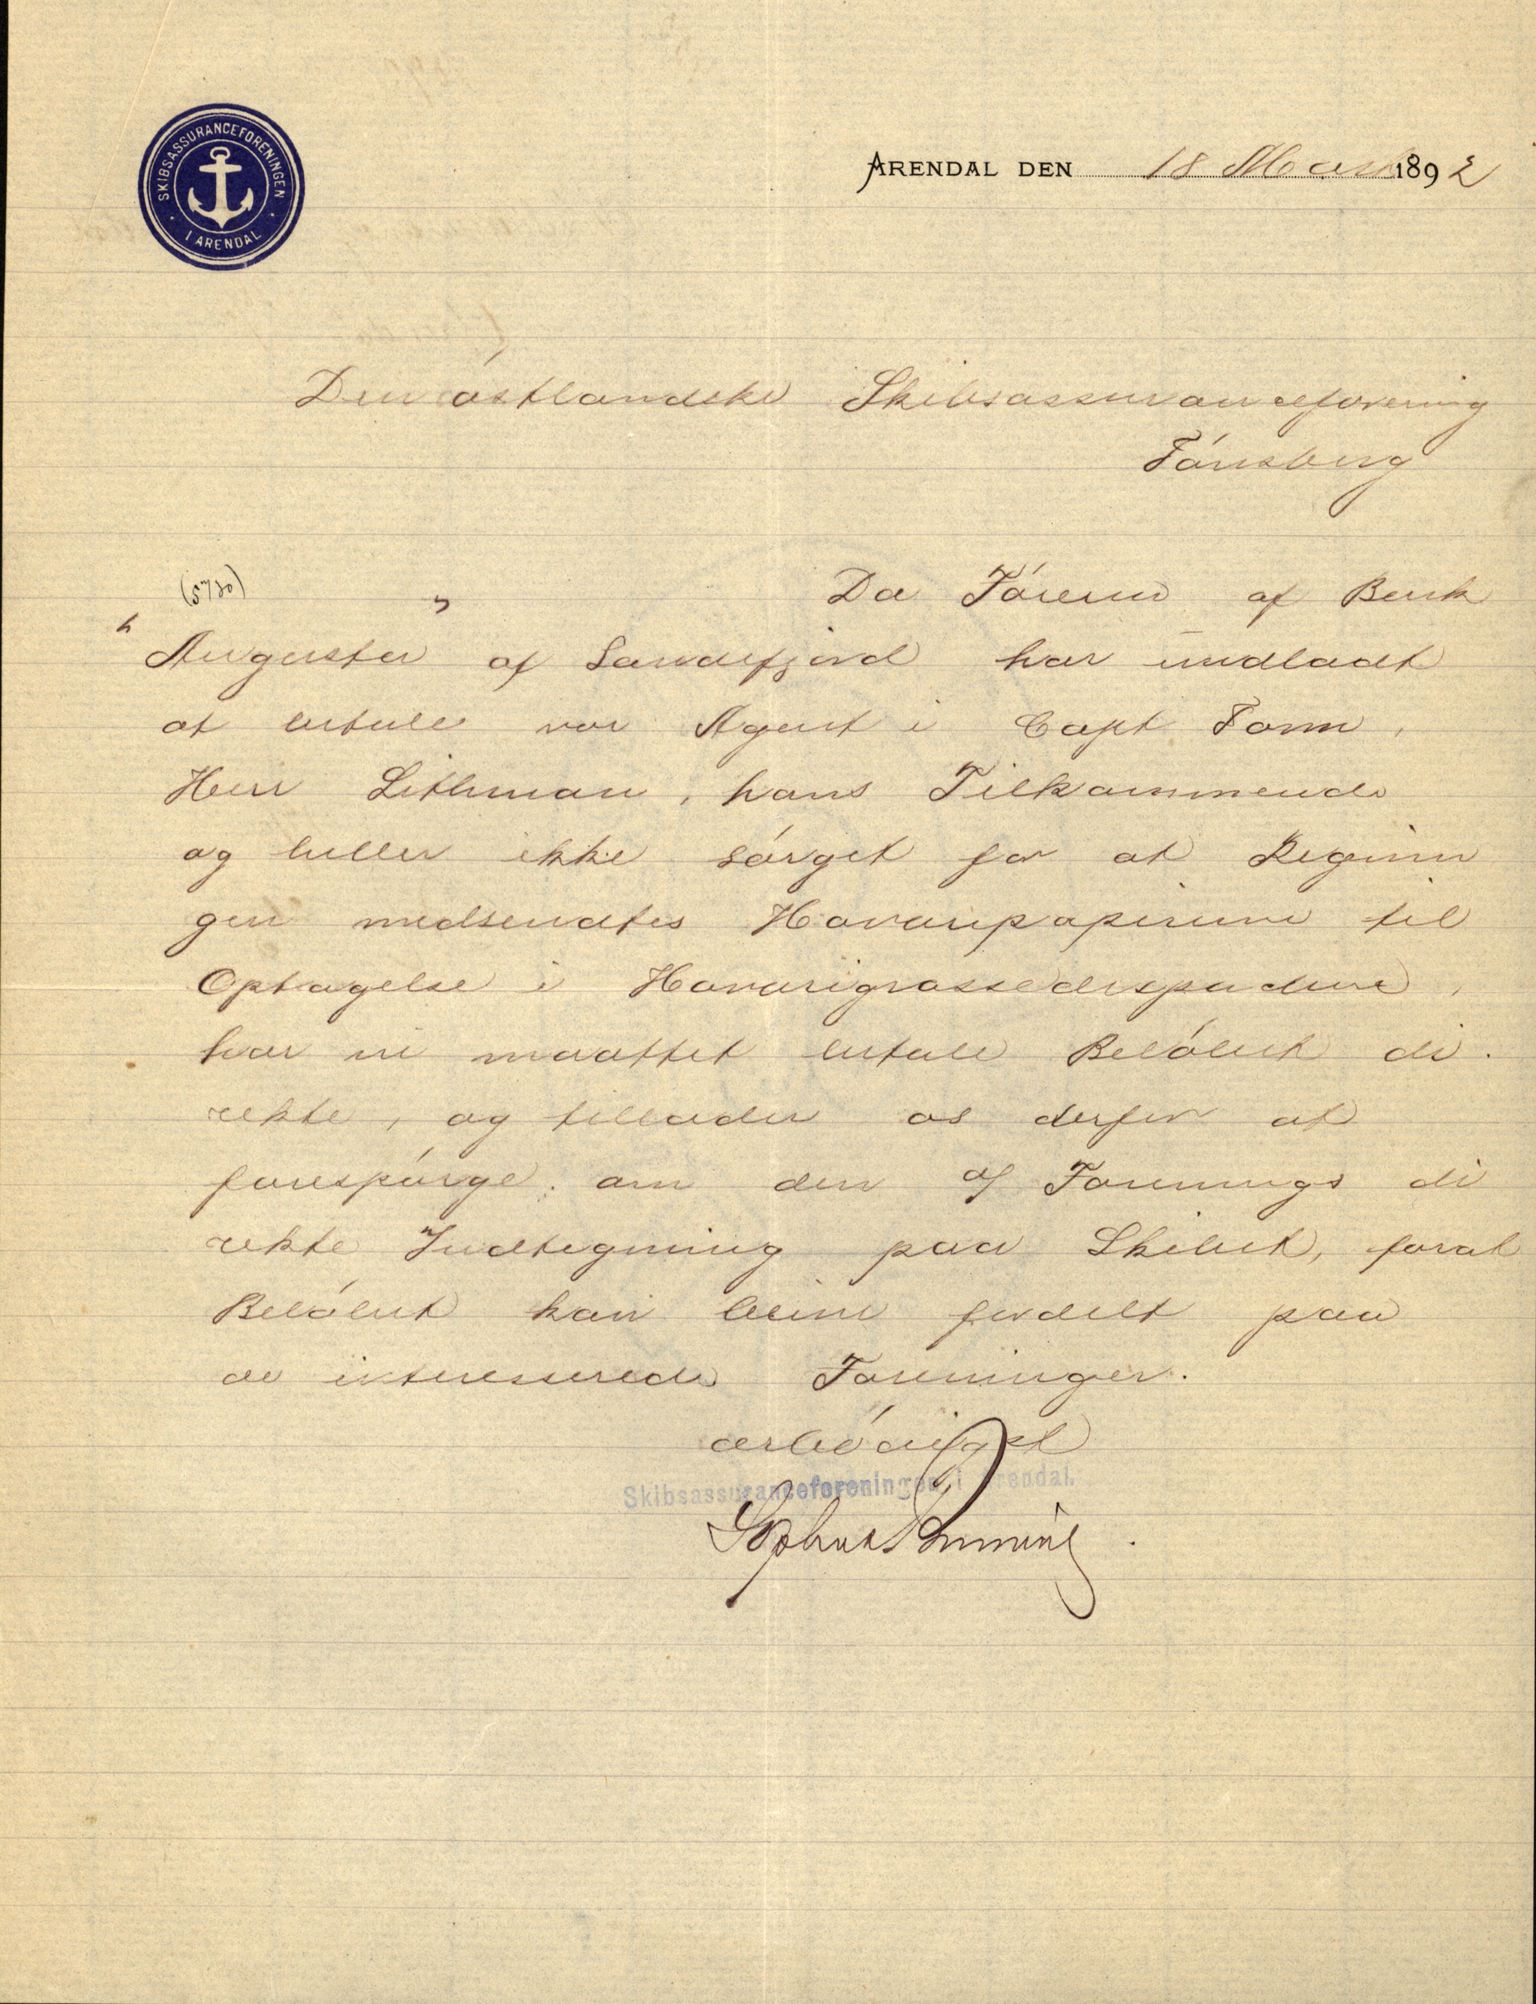 SKIBSASSURANCEFORENINGEN
I ARENDAL
ARENDAL DEN 18 Marts 1892
Den östlandske Skibsassuranceforening
Tönsberg
(5720)
Da Föreren af Bark
"Augusta" af Sandefjord har undladt
at betale vor Agent i Cape Town,
Herr Lithman, hans Tilkommende
og heller ikke sörget for at Regnin
gen medsendtes Havaripapirerne til
Optagelse i Havarigrossedispachen,
har vi maattet betale Belöbet di-
rekte, og tillader os derfor at
forespörge om den af Forenings di
rekte Indtegning paa Skibet, forat
Belöbet kan blive fordelt paa
de interesserede Foreninger.
ærbödigst
Skibsassuranceforeningen i Arendal.
Sophus